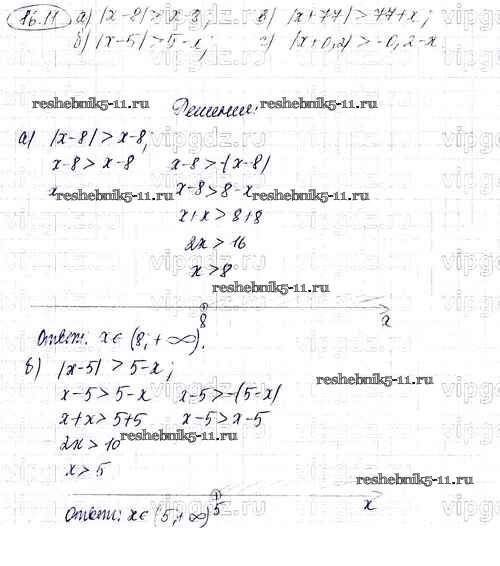 16.11 а) |x-8| > x-8; в) |x+77| > 77+x;
б) |x-5| > 5-x; г) |x+0,2| > -0,2-x
reshebnik5-11.ru reshebnik5-11.ru
Решение:
а) |x-8| > x-8;
x-8 > x-8 x-8 > -(x-8)
x reshebnik5-11.ru x-8 > 8-x reshebnik5-11.ru
x+x > 8+8
2x > 16
x > 8
reshebnik5-11.ru
8 x
Ответ: x∈ (8; +∞).
б) |x-5| > 5-x;
reshebnik5-11.ru
x-5 > 5-x x-5 > -(5-x)
x+x > 5+5 x-5 > x-5
2x > 10 reshebnik5-11.ru
x > 5
reshebnik5-11.ru
5 x
Ответ: x∈ (5; +∞)
vipgdz.ru